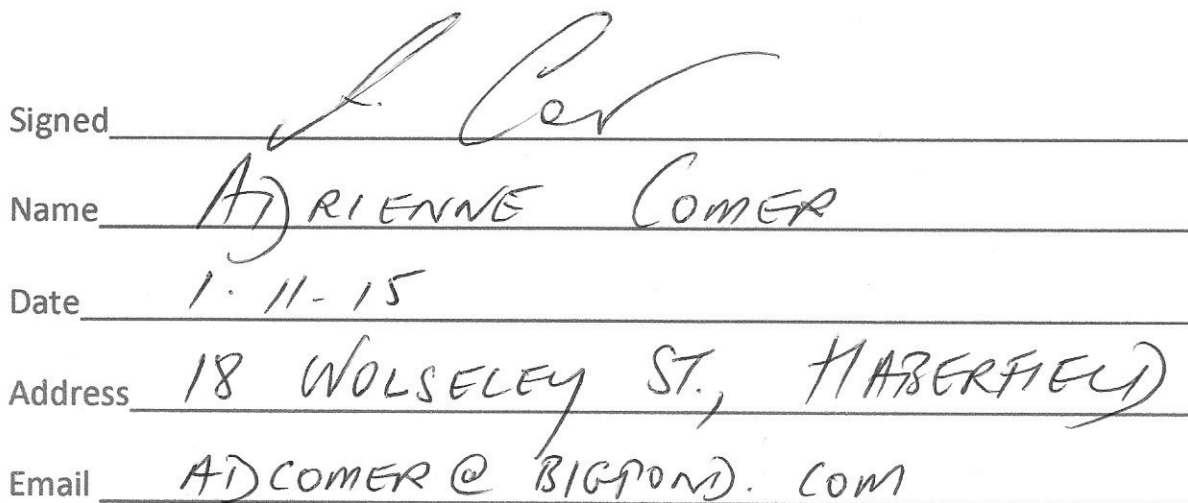 Signed
Name ADRIENNE COMER
Date 1.11-15
Address 18 WOLSELEY ST., HABERFIELD
Email ADCOMER@BIGPOND.COM